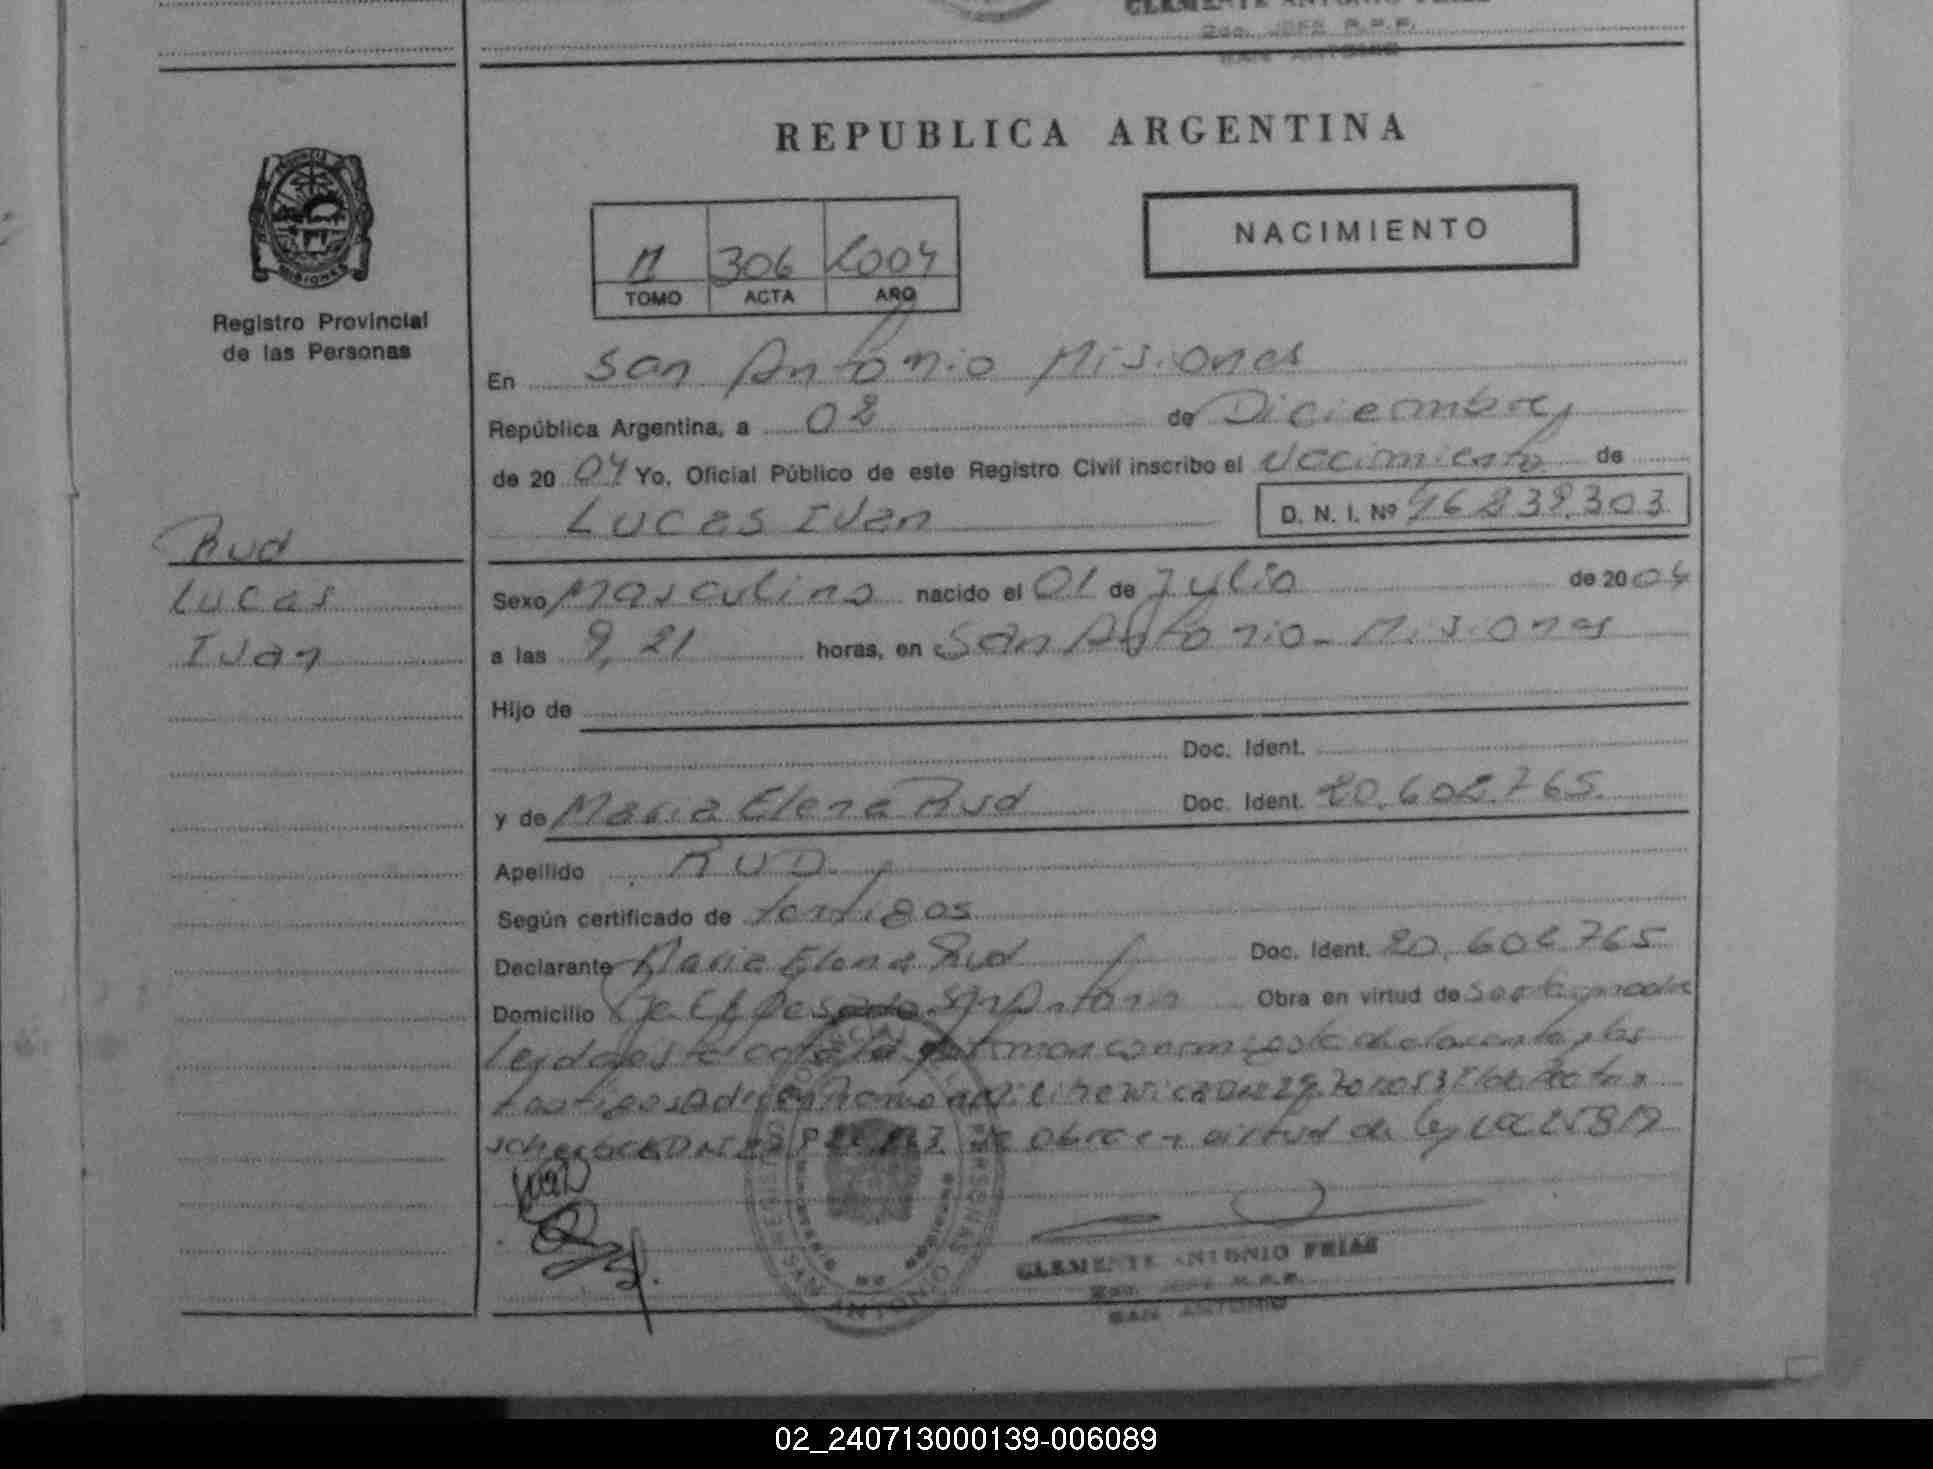 CLEMENTE ANTONIO FRIAS
2do. JEFE R.P.P.
SAN ANTONIO
REPUBLICA ARGENTINA
PROVINCIA
MISIONES
Registro Provincial
de las Personas
306 2004
TOMO ACTA AÑO
NACIMIENTO
En San Antonio Misiones
República Argentina, a 02 de Diciembre
de 20 04 Yo, Oficial Público de este Registro Civil inscribo el Nacimiento de
Lucas Ivan D. N. I. Nº 46.838.303
Rud
Lucas
Ivan
Sexo Masculino nacido el 01 de Julio de 20 04
a las 9,21 horas, en San Antonio - Misiones
Hijo de
Doc. Ident.
y de Maria Elena Rud Doc. Ident. 20.602.765
Apellido RUD
Según certificado de testigos
Declarante Maria Elena Rud Doc. Ident. 20.602.765
Domicilio San Antonio Obra en virtud de
testigos
DNI Obra en virtud de ley
CLEMENTE ANTONIO FRIAS
2do. JEFE R.P.P.
SAN ANTONIO
02_240713000139-006089